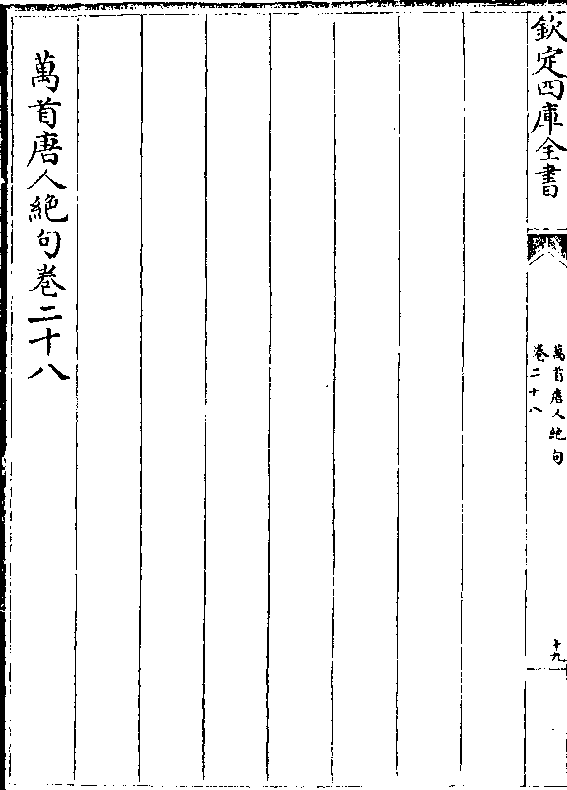 欽定四庫全書
萬首唐人絶句
卷二十八
十九
萬首唐人絶句卷二十八